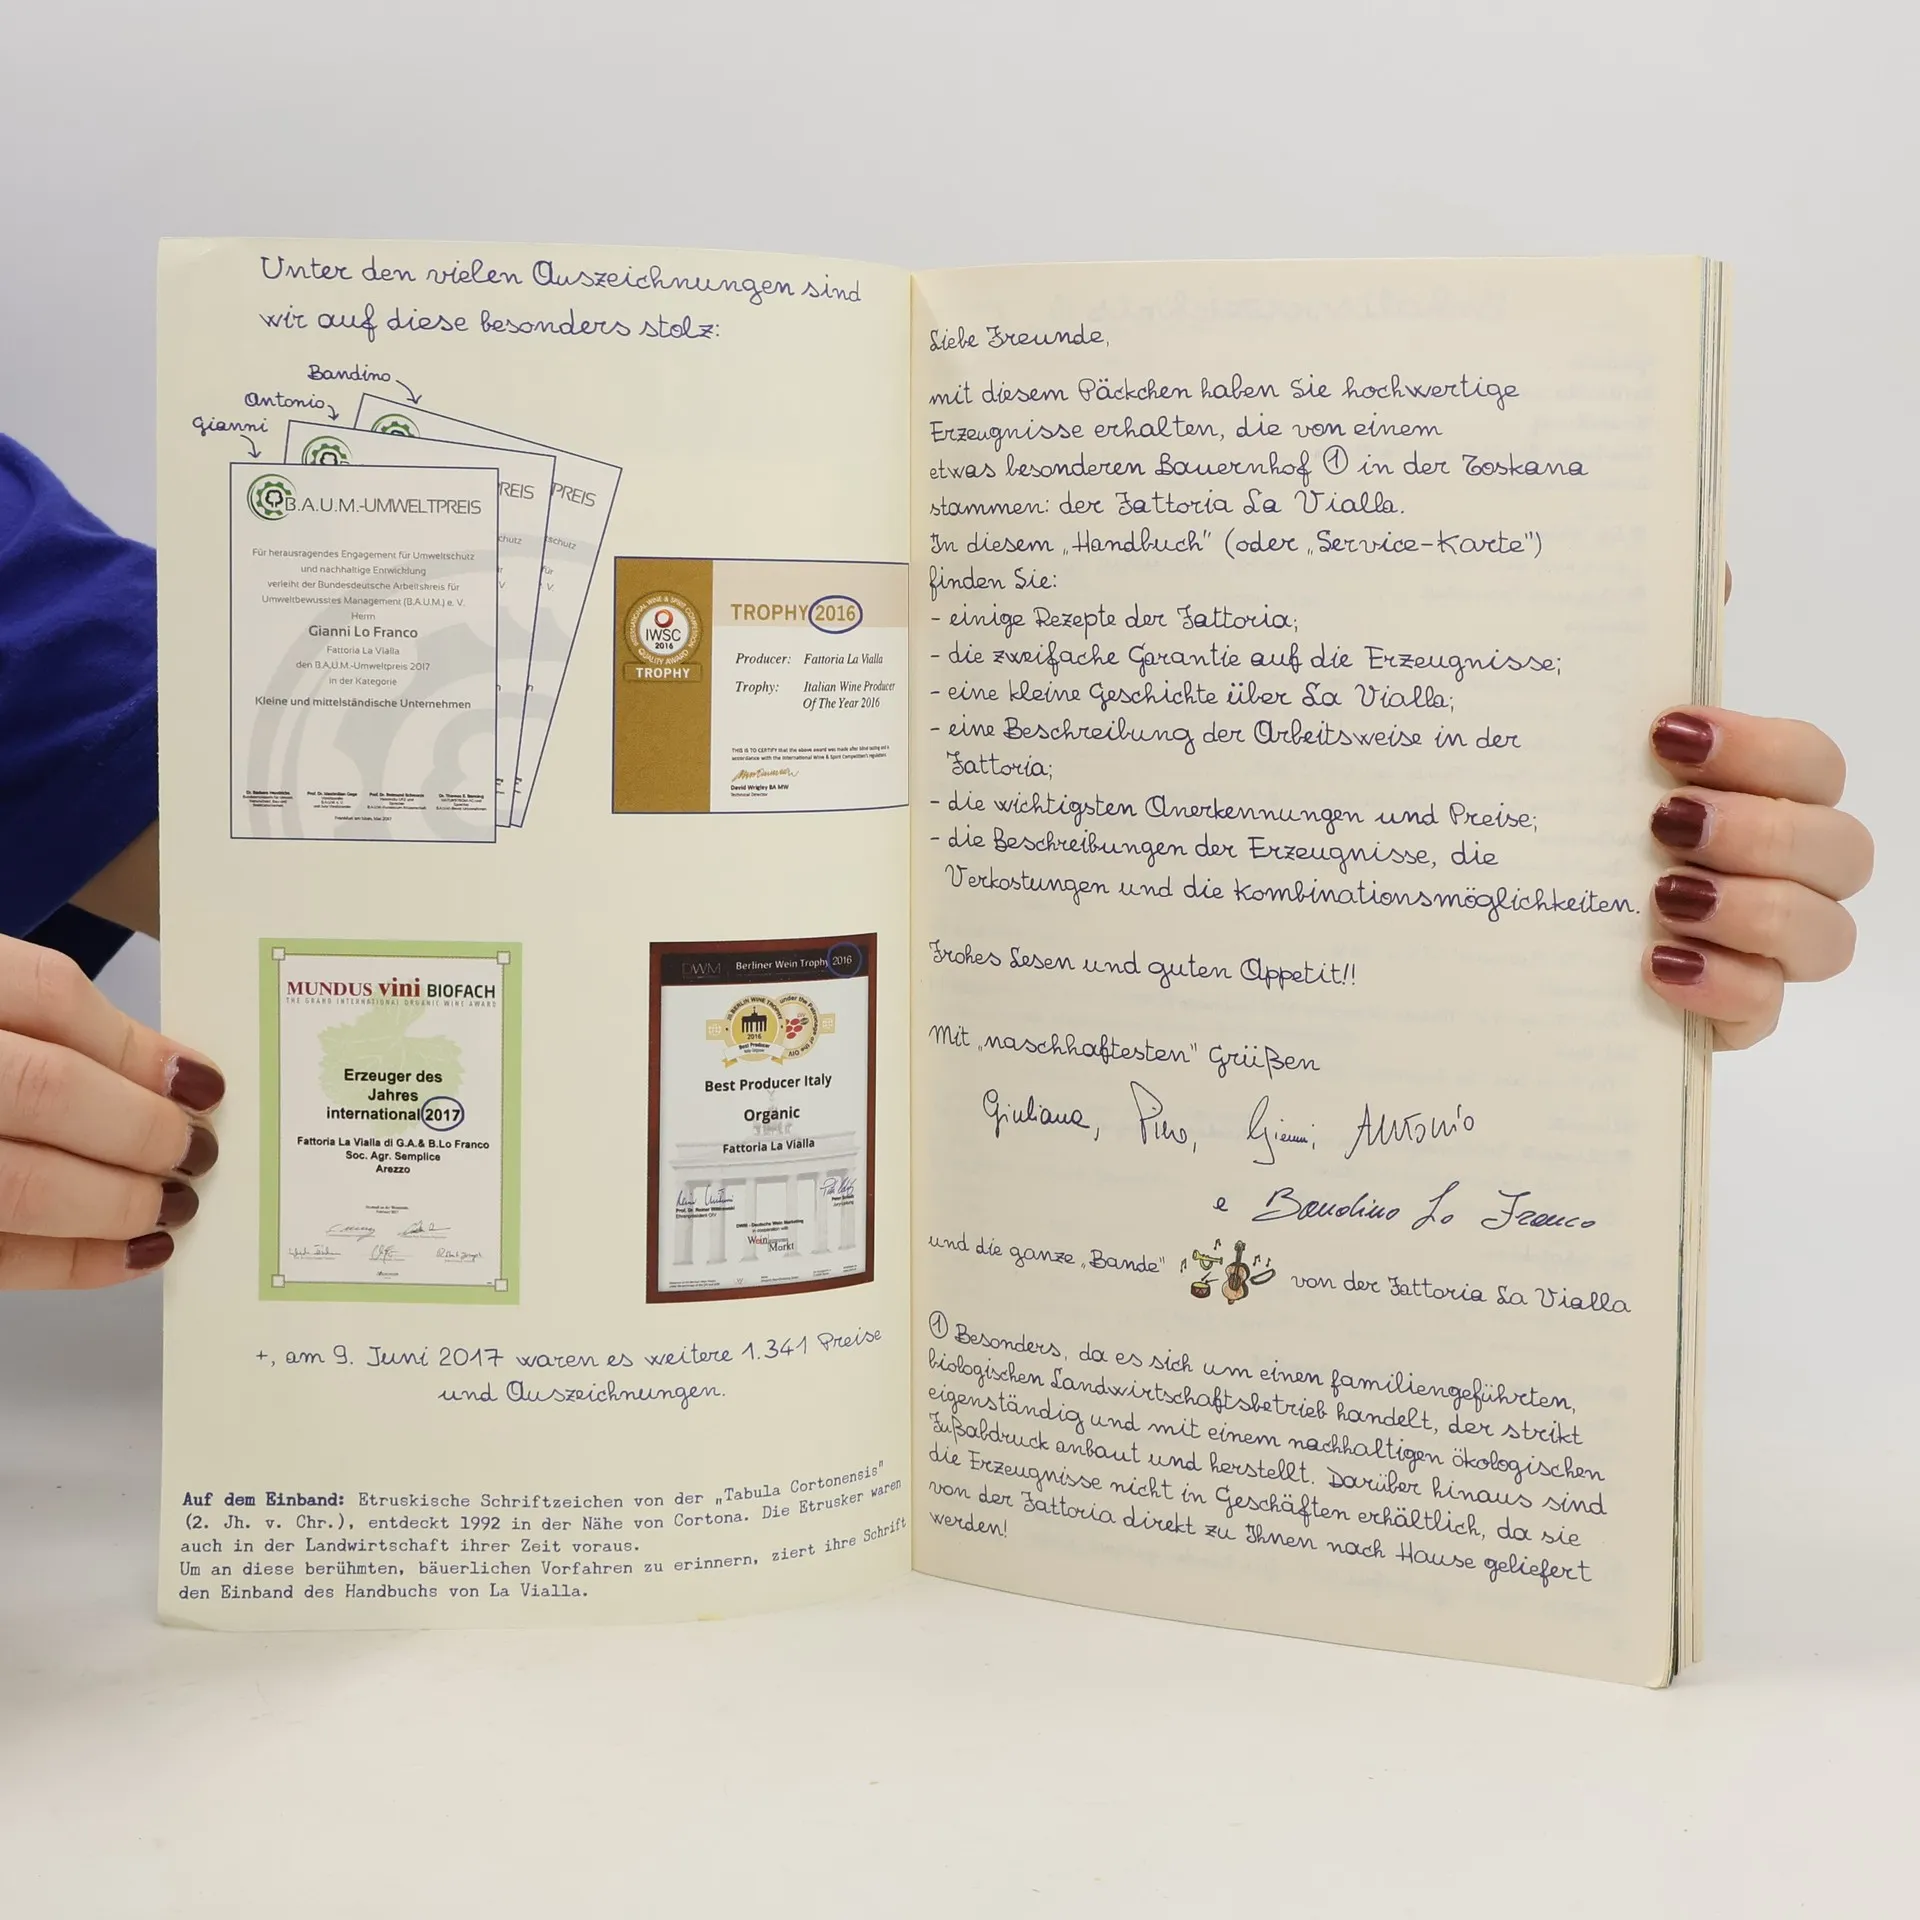 Unter den vielen Auszeichnungen sind
wir auf diese besonders stolz:
Bandino
Antonio
Gianni
PREIS
REIS
B.A.U.M.-UMWELTPREIS
chutz
schutz
Für herausragendes Engagement für Umweltschutz
und nachhaltige Entwicklung
verleiht der Bundesdeutsche Arbeitskreis für
Umweltbewusstes Management (B.A.U.M.) e. V.
Herrn
Gianni Lo Franco
Fattoria La Vialla
den B.A.U.M.-Umweltpreis 2017
in der Kategorie
Kleine und mittelständische Unternehmen
INTERNATIONAL WINE & SPIRIT COMPETITION
IWSC
2016
QUALITY AWARD
TROPHY
TROPHY 2016
Producer: Fattoria La Vialla
Trophy: Italian Wine Producer
Of The Year 2016
THIS IS TO CERTIFY that the above award was made after blind tasting and in
accordance with the International Wine & Spirit Competition's regulations
David Wrigley BA MW
Technical Director
MUNDUS vini BIOFACH
THE GRAND INTERNATIONAL ORGANIC WINE AWARD
Erzeuger des
Jahres
international 2017
Fattoria La Vialla di G.A.& B.Lo Franco
Soc. Agr. Semplice
Arezzo
DWM Berliner Wein Trophy 2016
2016
Best Producer
Best Producer Italy
Organic
Fattoria La Vialla
DWM - Deutsche Wein Marketing
in cooperation with
Wein
Markt
+, am 9. Juni 2017 waren es weitere 1.341 Preise
und Auszeichnungen.
Auf dem Einband: Etruskische Schriftzeichen von der „Tabula Cortonensis"
(2. Jh. v. Chr.), entdeckt 1992 in der Nähe von Cortona. Die Etrusker waren
auch in der Landwirtschaft ihrer Zeit voraus.
Um an diese berühmten, bäuerlichen Vorfahren zu erinnern, ziert ihre Schrift
den Einband des Handbuchs von La Vialla.
Liebe Freunde,
mit diesem Päckchen haben Sie hochwertige
Erzeugnisse erhalten, die von einem
etwas besonderen Bauernhof ① in der Toskana
stammen: der Fattoria La Vialla.
In diesem „Handbuch" (oder „Service-Karte")
finden Sie:
- einige Rezepte der Fattoria;
- die zweifache Garantie auf die Erzeugnisse;
- eine kleine Geschichte über La Vialla;
- eine Beschreibung der Arbeitsweise in der
Fattoria;
- die wichtigsten Anerkennungen und Preise;
- die Beschreibungen der Erzeugnisse, die
Verkostungen und die Kombinationsmöglichkeiten.
Frohes Lesen und guten Appetit!!
Mit „naschhaftesten" Grüßen
Giuliana, Piero, Gianni, Antonio
e Bandino Lo Franco
und die ganze „Bande" von der Fattoria La Vialla
① Besonders, da es sich um einen familiengeführten,
biologischen Landwirtschaftsbetrieb handelt, der strikt
eigenständig und mit einem nachhaltigen ökologischen
Fußabdruck anbaut und herstellt. Darüber hinaus sind
die Erzeugnisse nicht in Geschäften erhältlich, da sie
von der Fattoria direkt zu Ihnen nach Hause geliefert
werden!